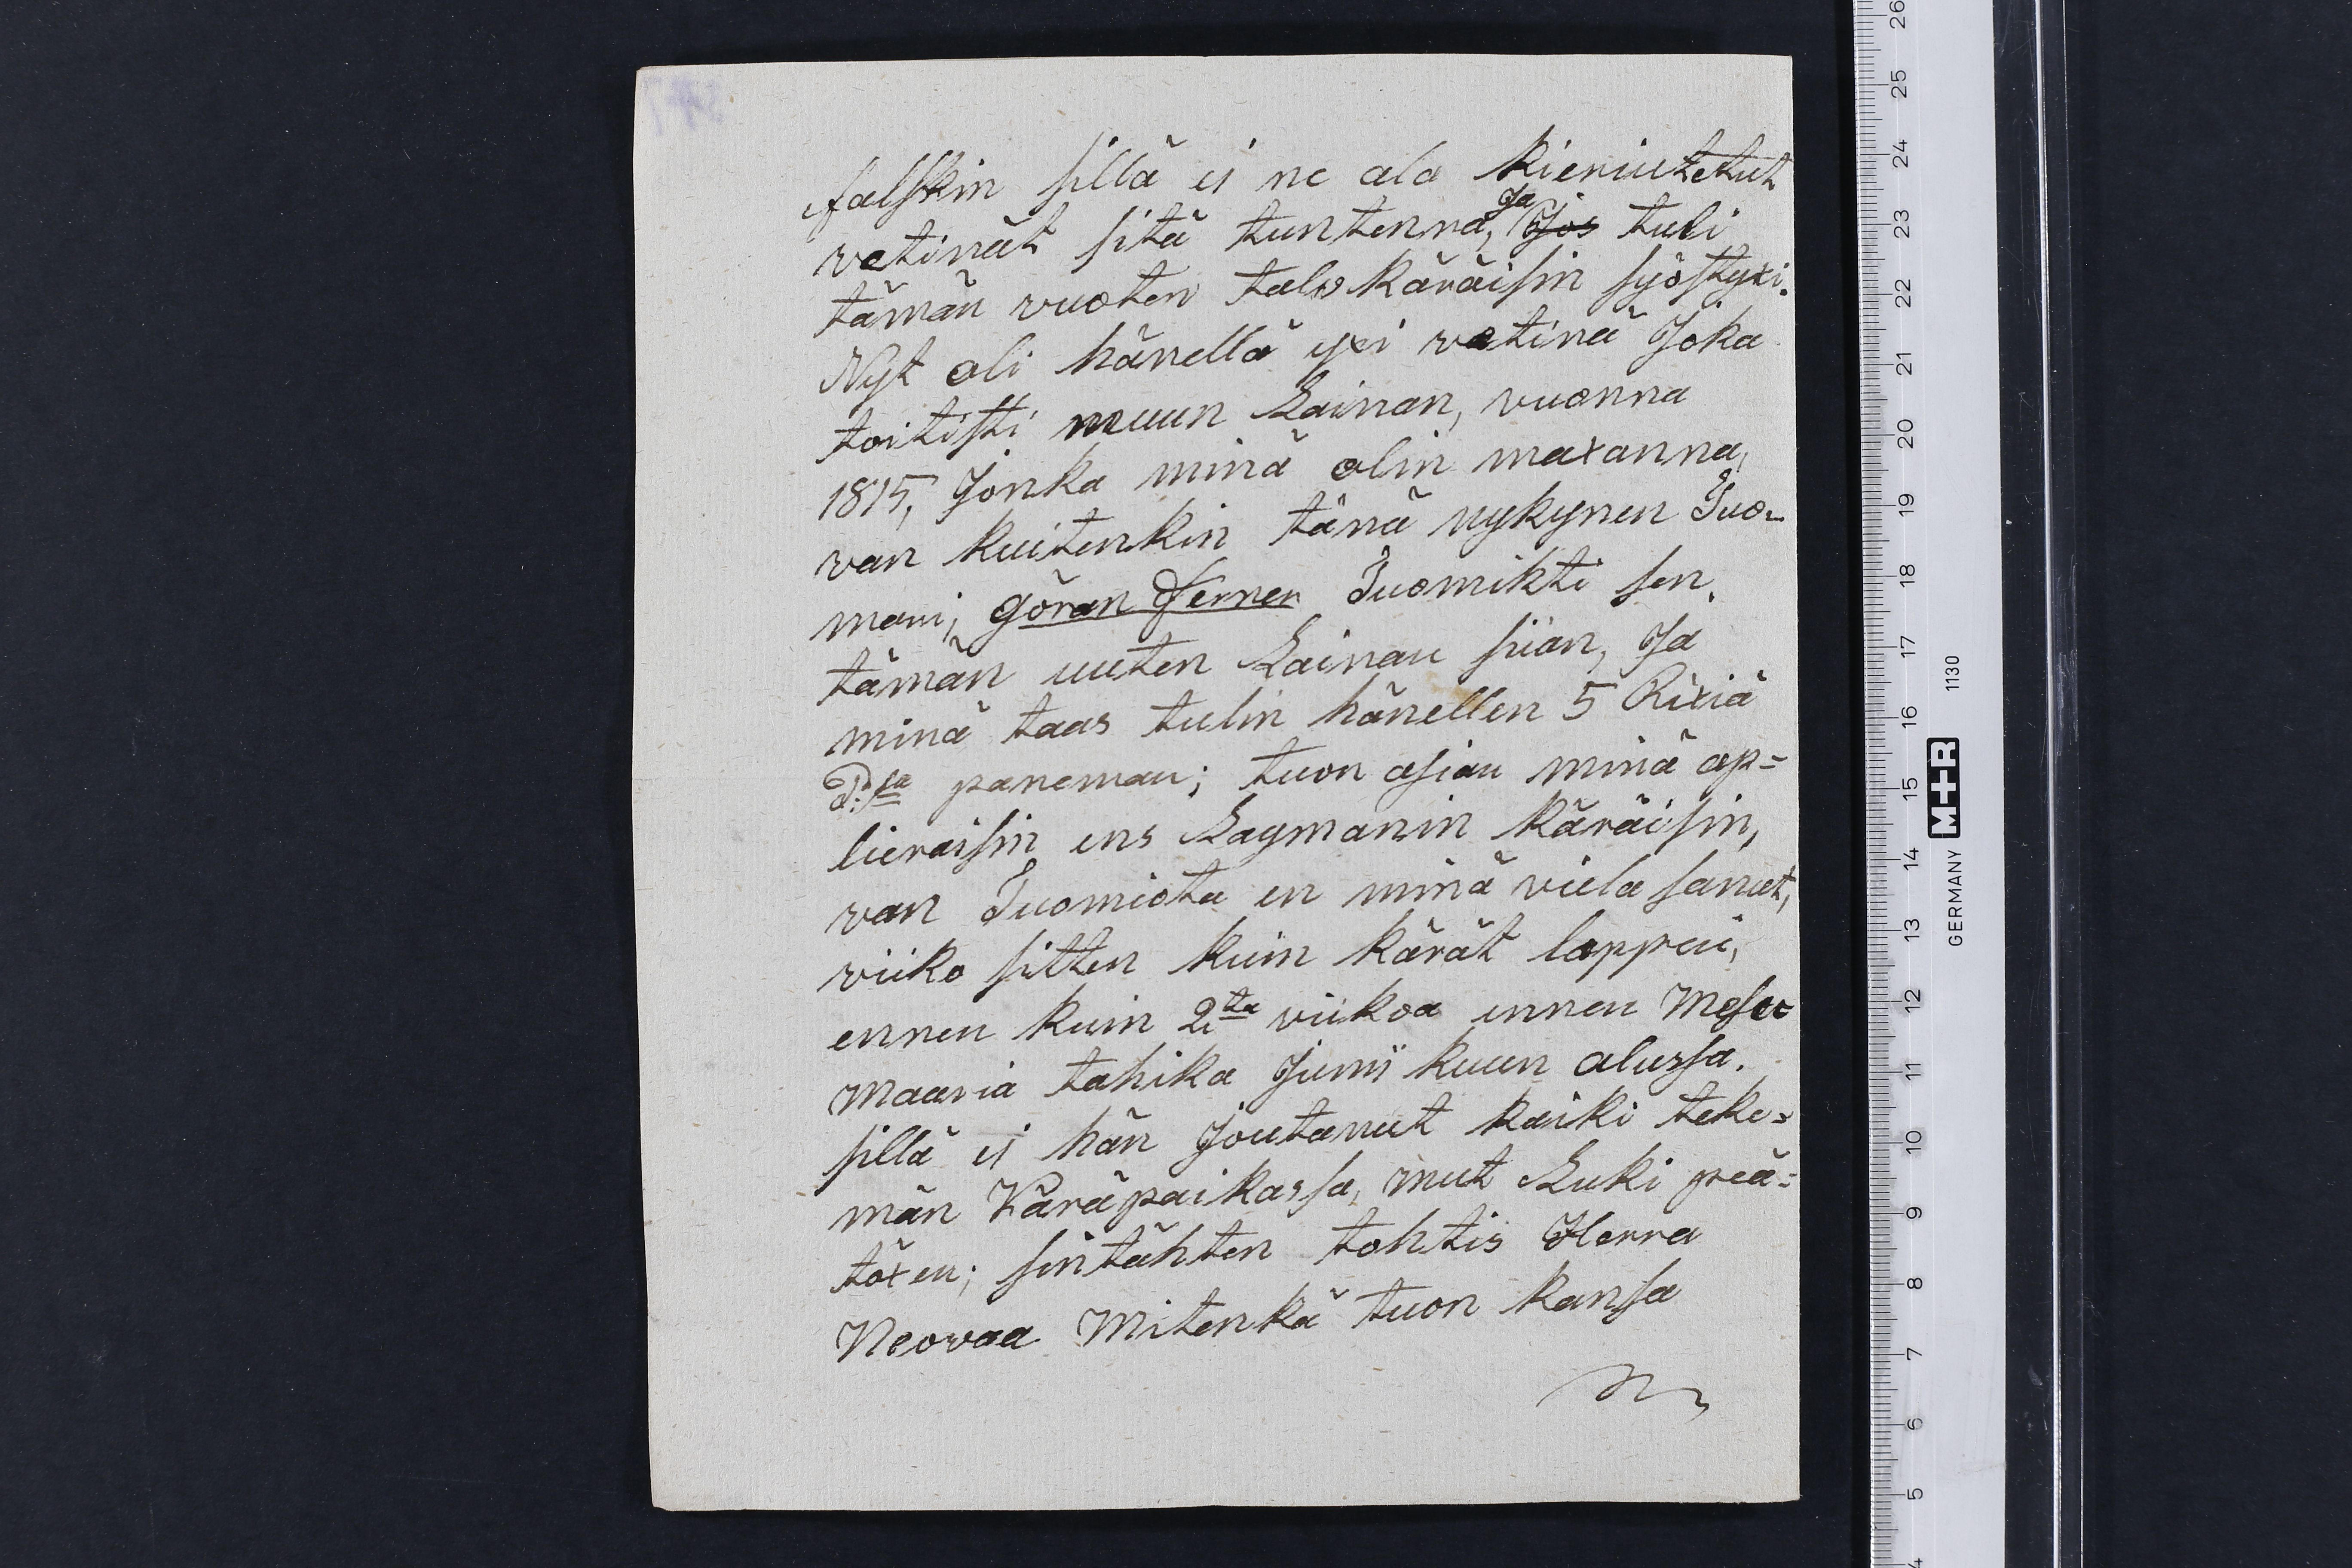 falskin sillä ei ne ala kieriutetut
vetinät sitä tuntenna, Ja Jos tuli
tämän vuoten talvkäräisin syöstyxi.
Nyt oli hänellä yxi vetinä Joka
toitisti muun Lainan, vuonna
1815, Jonka minä olin maxanna,
van kuitenkin tänä nykynen Tuo-
mari, Göran Ferner Tuomihti sen,
tämän uuten Lainan siian, Ja
minä taas tulin hänellen 5 Rixiä
B:sa paneman; tuon asian minä ap=
lieraisin ens Lagmanin käräisin,
van Tuomiota en minä viela sanut,
viiko sitten kuin kärät loppui,
ennen kuin 2:ta viikoa ennen Mese
maaria tahika Junii kuun alussa.
sillä ei hän Joutanut kaiki teke=
män Käräpaikassa, mut Luki peä=
töxen; sintähten tohtis Herra
Neovaa Mitenkä tuon kansa